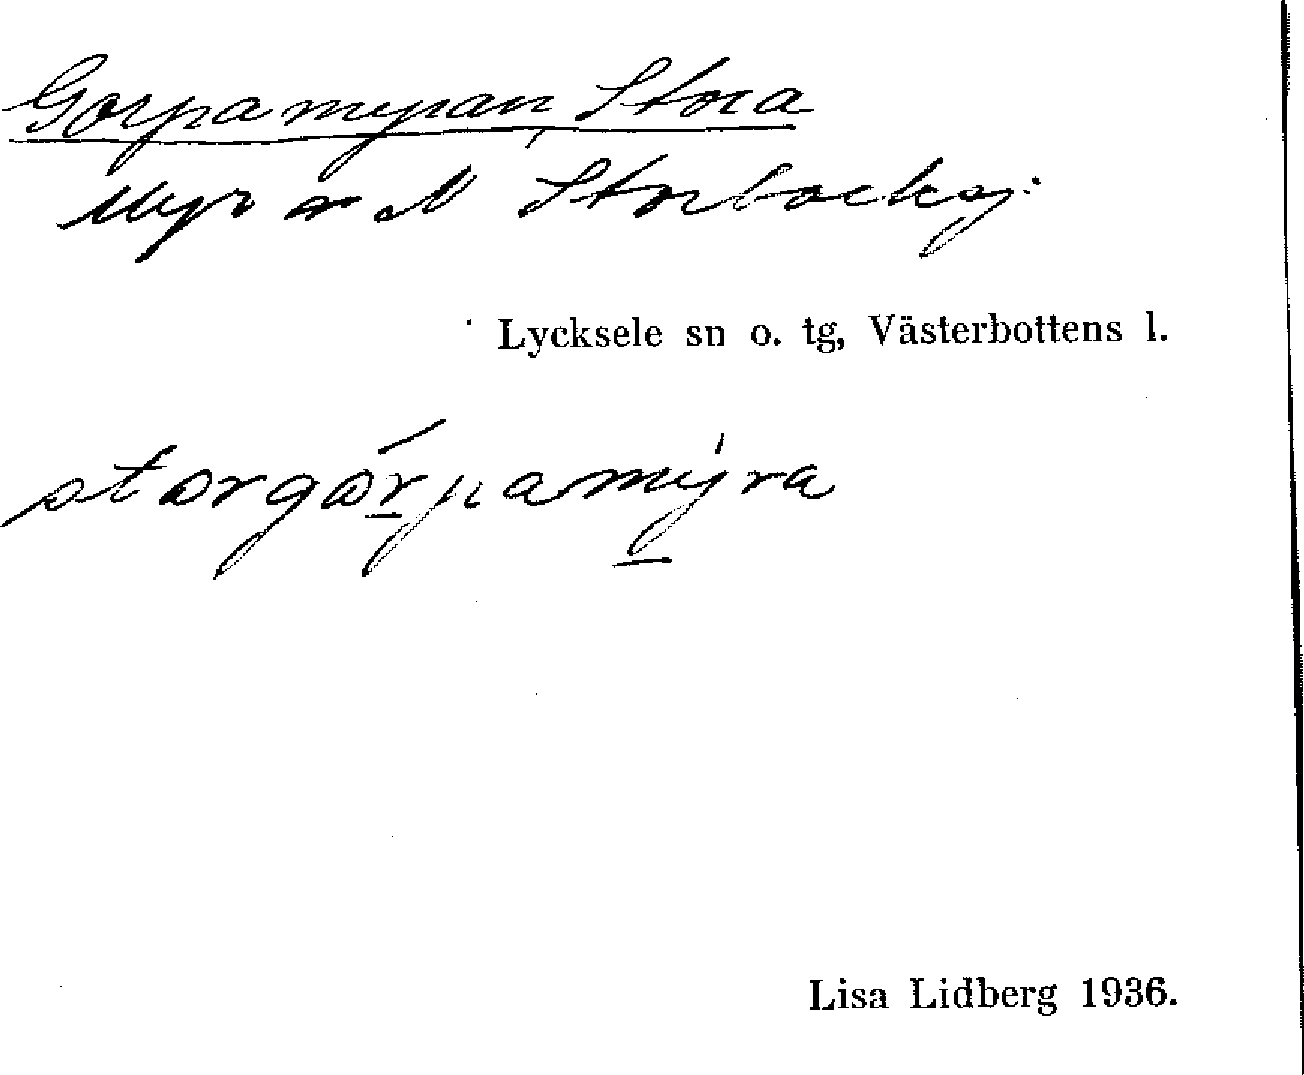 Gorpamyran, Stora
Myr n N Storbäcksj.
Lycksele sn o. tg, Västerbottens l.
storgårpamyra
Lisa Lidberg 1936.